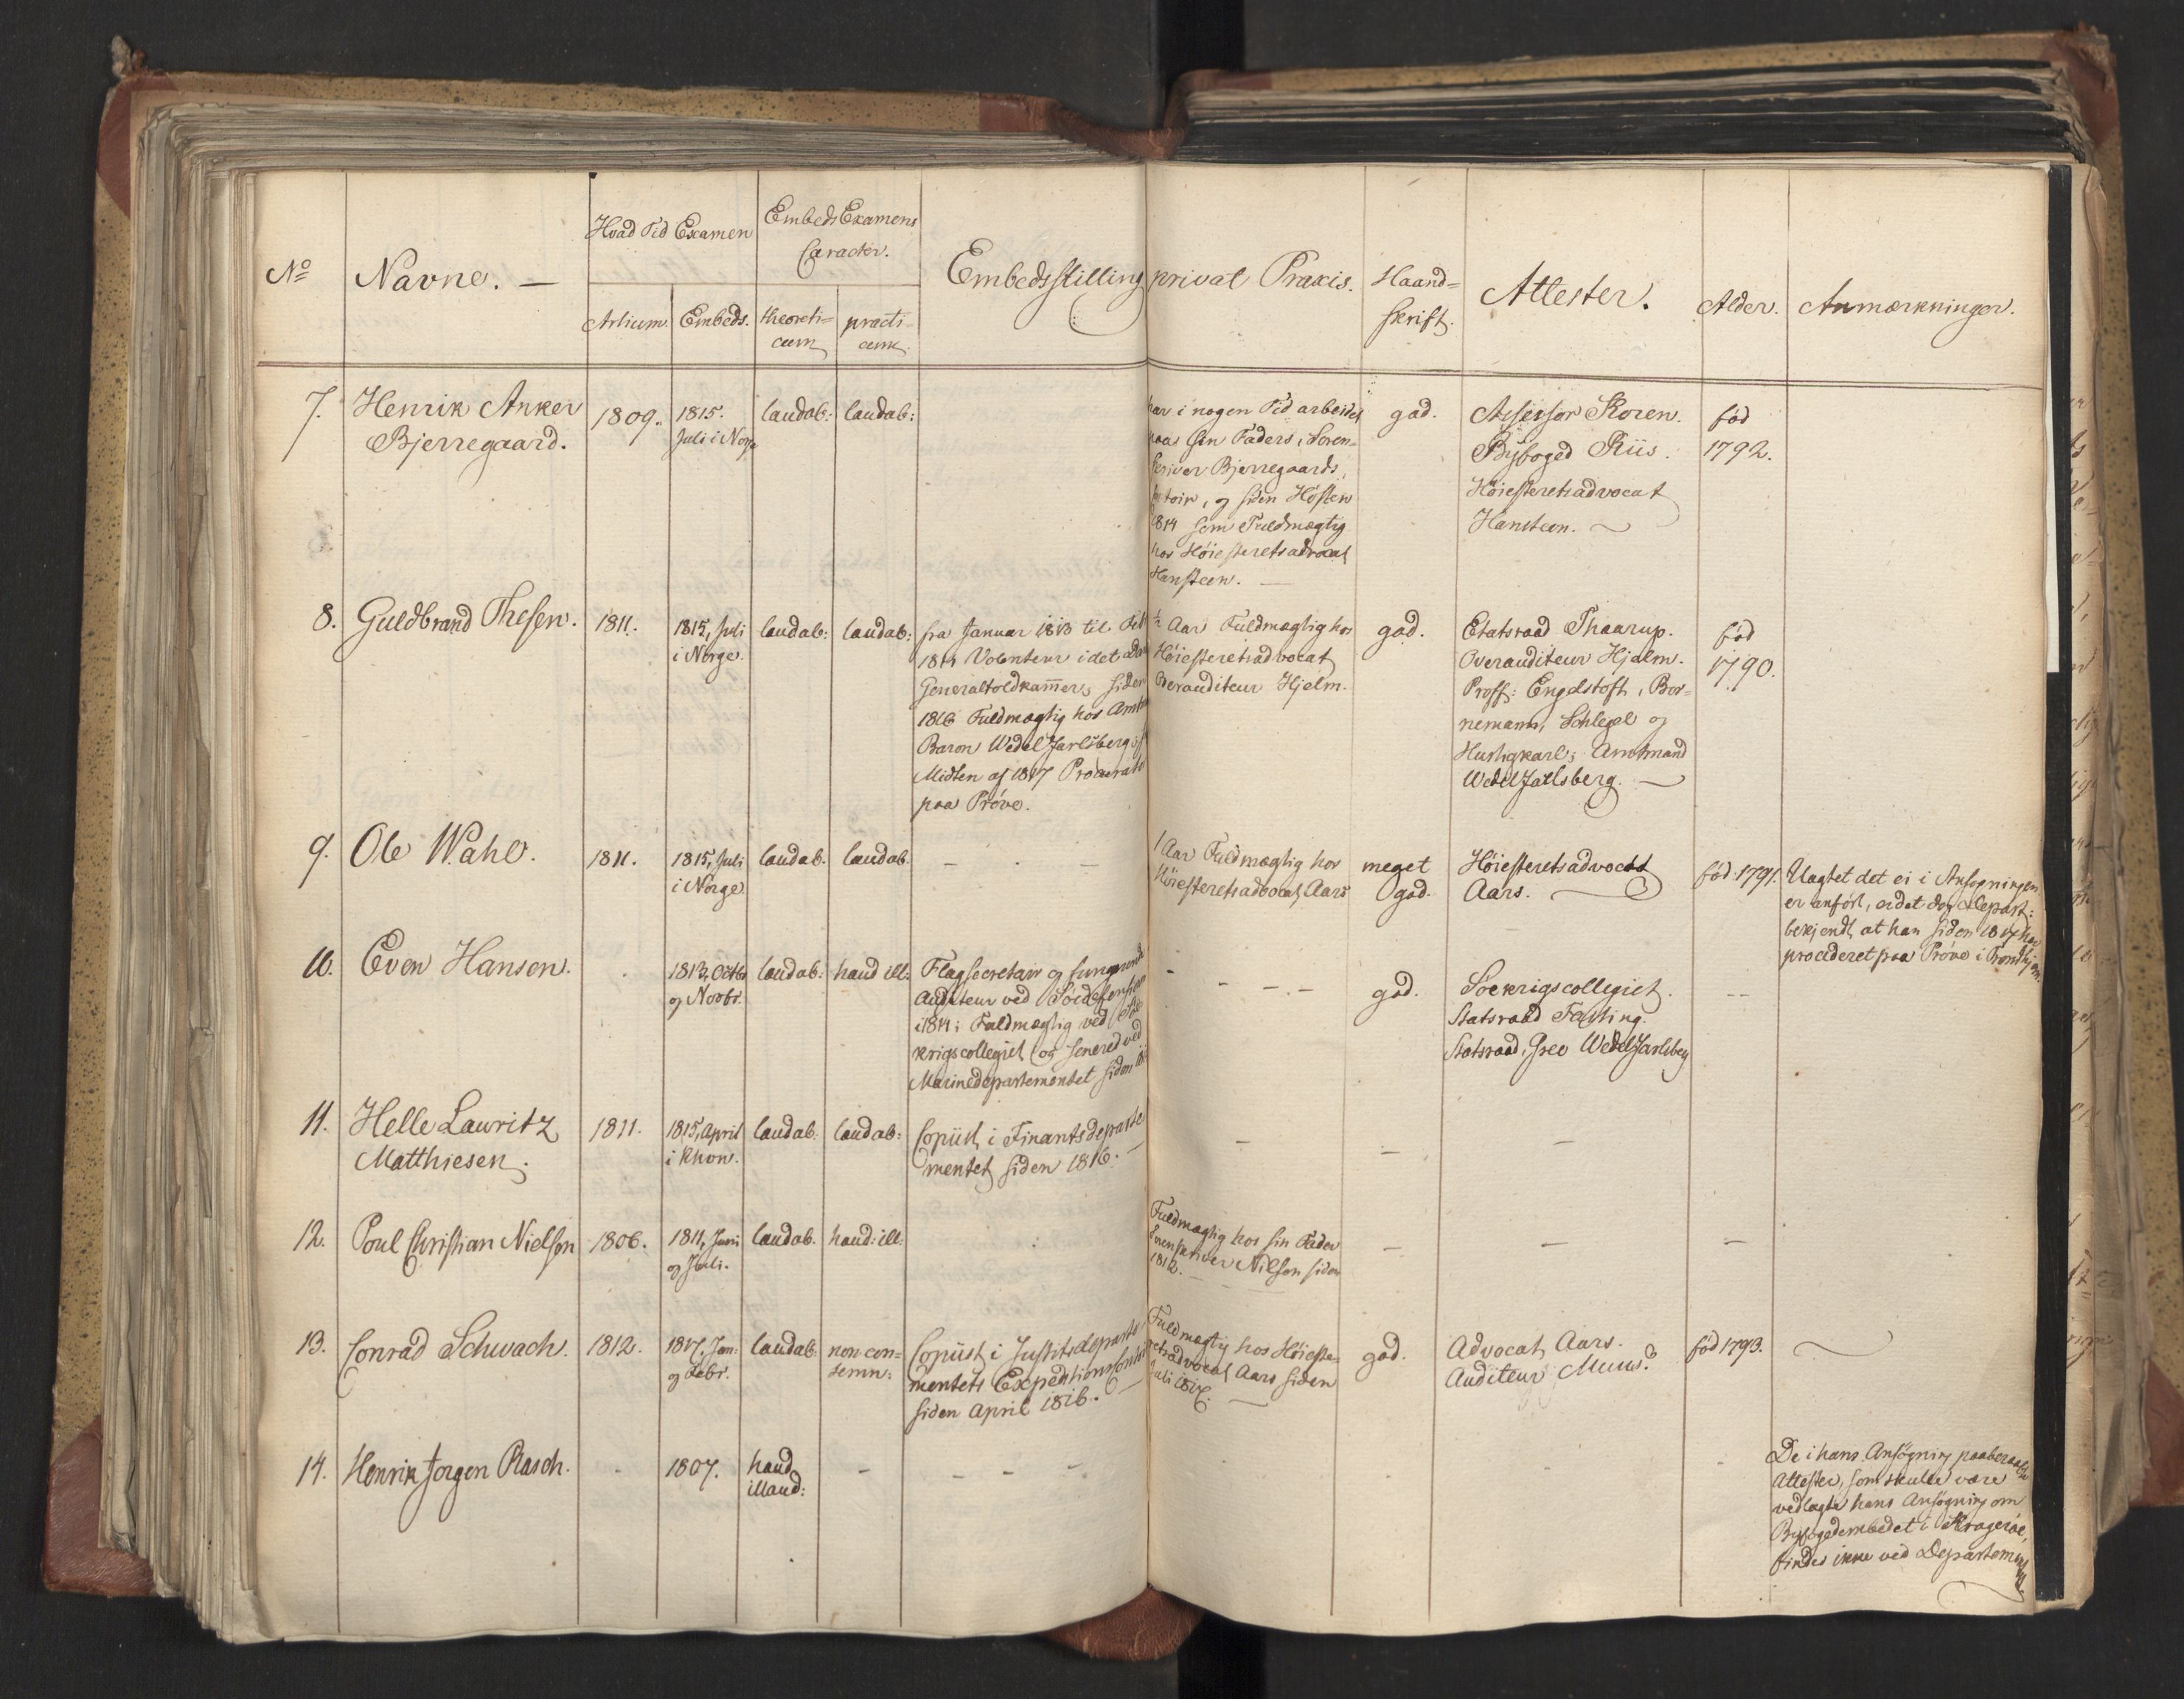 No
Navne. —
Hvad Tid Examen
Artium.
Embeds.
Embeds Examens
Caracter.
theoreti=
cum
practi=
cum
Embedsstilling
privat Praxis.
Haand=
skrift.
Attester.
Alder.
Anmærkninger.
7.
Henrik Anker
Bjerregaard.
1809.
1815.
Juli i Norge
laudab:
laudab:
har i nogen Tid arbeidet
paa sin Faders, Soren=
skriver Bjerregaards,
og siden Høsten
1814 som Fuldmægtig
hos Høiesteretsadvocat
Hansteen. —
god.
Assessor Koren.
Byfoged Riis.
Høiesteretsadvocat
Hansteen. ~
fød
1792.
8.
Guldbrand Thesen.
1811.
1815, Juli
i Norge.
laudab:
laudab:
fra Januar 1813 til
1814 Volonteur i det
Generaltoldkammer, siden
1816 Fuldmægtig hos
Baron Wedel Jarlsberg
Midten af 1817
paa Prøve.
½ Aar Fuldmægtig hos
Høiesteretsadvocat
Overauditeur Hjelm.
god.
Etatsraad Thaarup.
Overauditeur Hjelm.
Proff: Engelstoft, Bor=
nemann, Schlegel og
Hurtigkarl; Amtmand
Wedel Jarlsberg. —
fød
1790.
9.
Ole Wahl.
1811.
1815, Juli
i Norge
laudab.
laudab.
— . —
1 Aar Fuldmægtig hos
Høiesteretsadvocat Aars
meget
god.
Høiesteretsadvocat
Aars. —
fød 1791.
Uagtet det ei i Ansøgningen
er anført, er det dog Depart:
bekjendt, at han siden 1817 har
procederet paa Prøve i Trondhjem.
10.
Even Hansen.
.
1813, Octbr
og Novbr.
laudab:
haud ill:
Flagsecretair og fungerende
Auditeur ved
i 1814; Fuldmægtig ved Søe
krigscollegiet (og senere) ved
Marinedepartementet siden
- - - -
god.
Søekrigscollegiet.
Statsraad Fasting.
Statsraad, Grev Wedel Jarlsberg
--
11.
Helle Lauritz
Matthiesen.
1811.
1815, April
i Khvn.
laudab.
laudab:
Copiist i Finantsdeparte
mentet siden 1816. —
—
—
—
12.
Poul Christian Nielsen
1806.
1811, Juni
og Juli.
laudab.
haud: ill:
Fuldmægtig hos sin Fader
Sorenskriver Nilsen siden
1812. —
—
—
—
13.
Conrad Schwach.
1812.
1817. Jan:
og Febr.
laudab.
non con=
temn:
Copiist i Justitsdeparte
mentets
siden April 1816. —
Fuldmægtig hos Høieste=
retsadvocat Aars siden
Juli 1817. —
god.
Advocat Aars.
Auditeur
fød 1793.
14.
Henrik Jørgen Rasch.
-
1807.
haud
illaud:
-
- - -
-
De i hans Ansøgning paaberaabte
Attester, som skulle være
vedlagte hans Ansøgning om
Byfogedembedet i Kragerøe,
findes ikke ved Departementet.